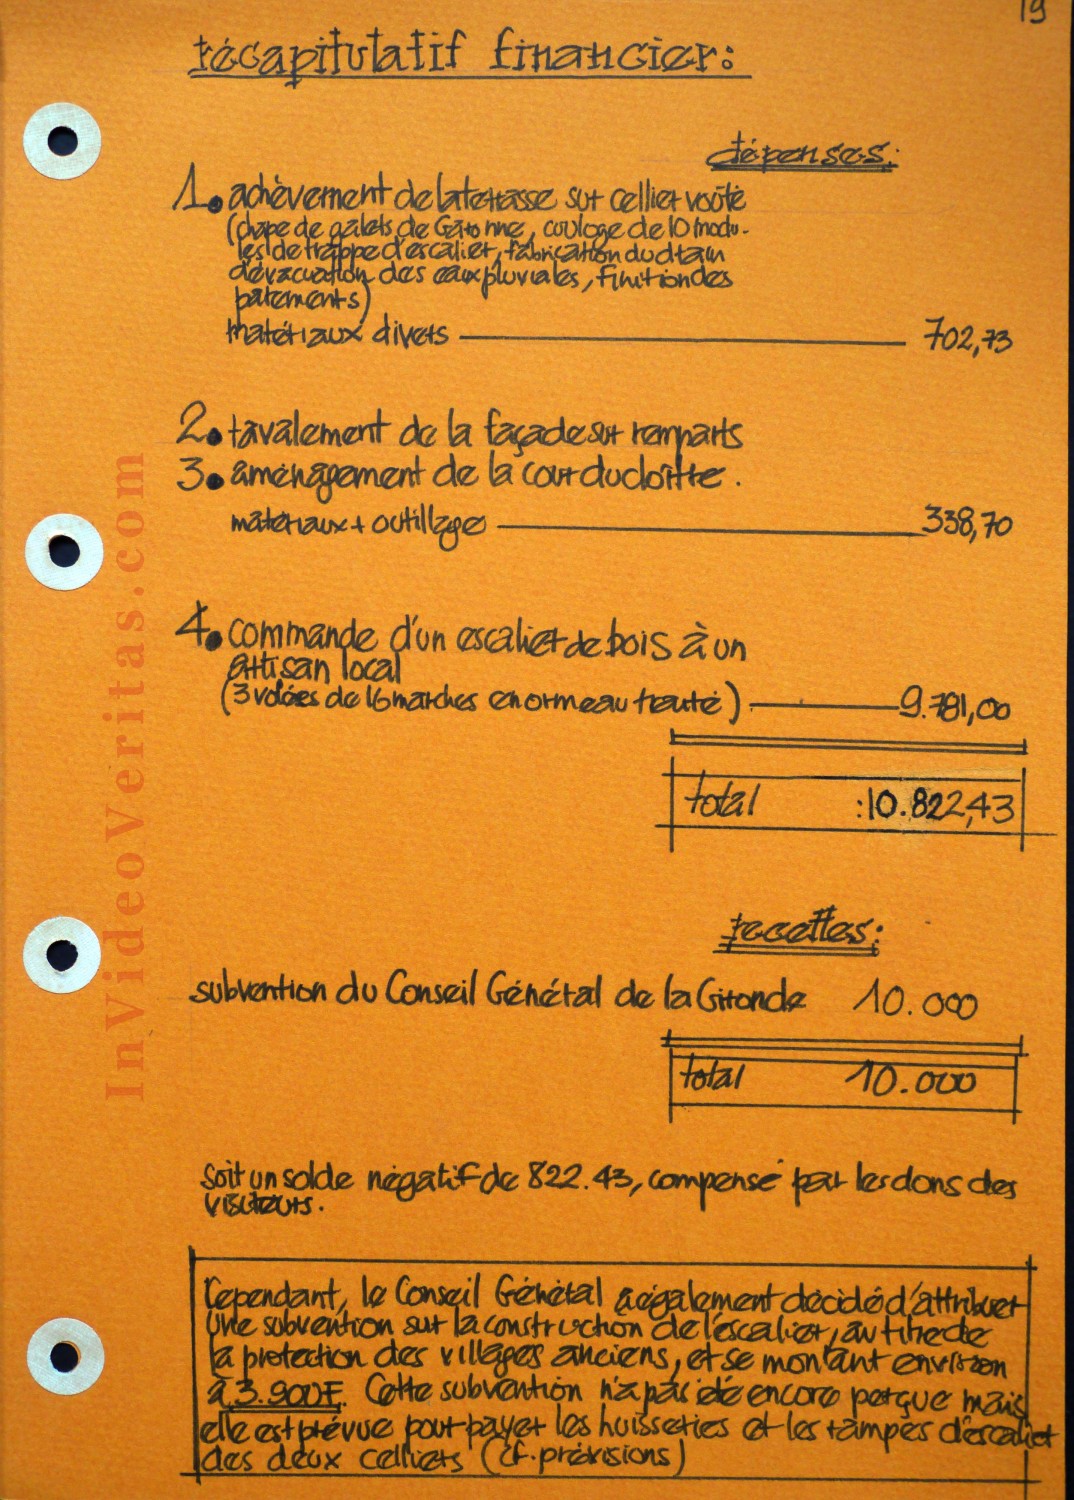 19
récapitulatif financier:
dépenses:
1. achèvement de la terrasse sur cellier voûté
(chape de galets de Garonne, coulage de 10 modu-
les de trappe d'escalier, fabrication du drain
d'évacuation des eaux pluviales, finition des
parements)
matériaux divers 702,73
2. ravalement de la façade sur remparts
3. aménagement de la cour du cloître.
matériaux + outillage 338,70
4. commande d'un escalier de bois à un
artisan local
(3 volées de 16 marches en ormeau traité) 9.781,00
total :10.822,43
recettes:
subvention du Conseil Général de la Gironde 10.000
total 10.000
soit un solde négatif de 822.43, compensé par les dons des
visiteurs.
Cependant, le Conseil Général a également décidé d'attribuer
une subvention sur la construction de l'escalier, au titre de
la protection des villages anciens, et se montant environ
à 3.900F. Cette subvention n'a pas été encore perçue mais
elle est prévue pour payer les huisseries et les rampes d'escalier
des deux celliers (cf. prévisions)
InVideoVeritas.com